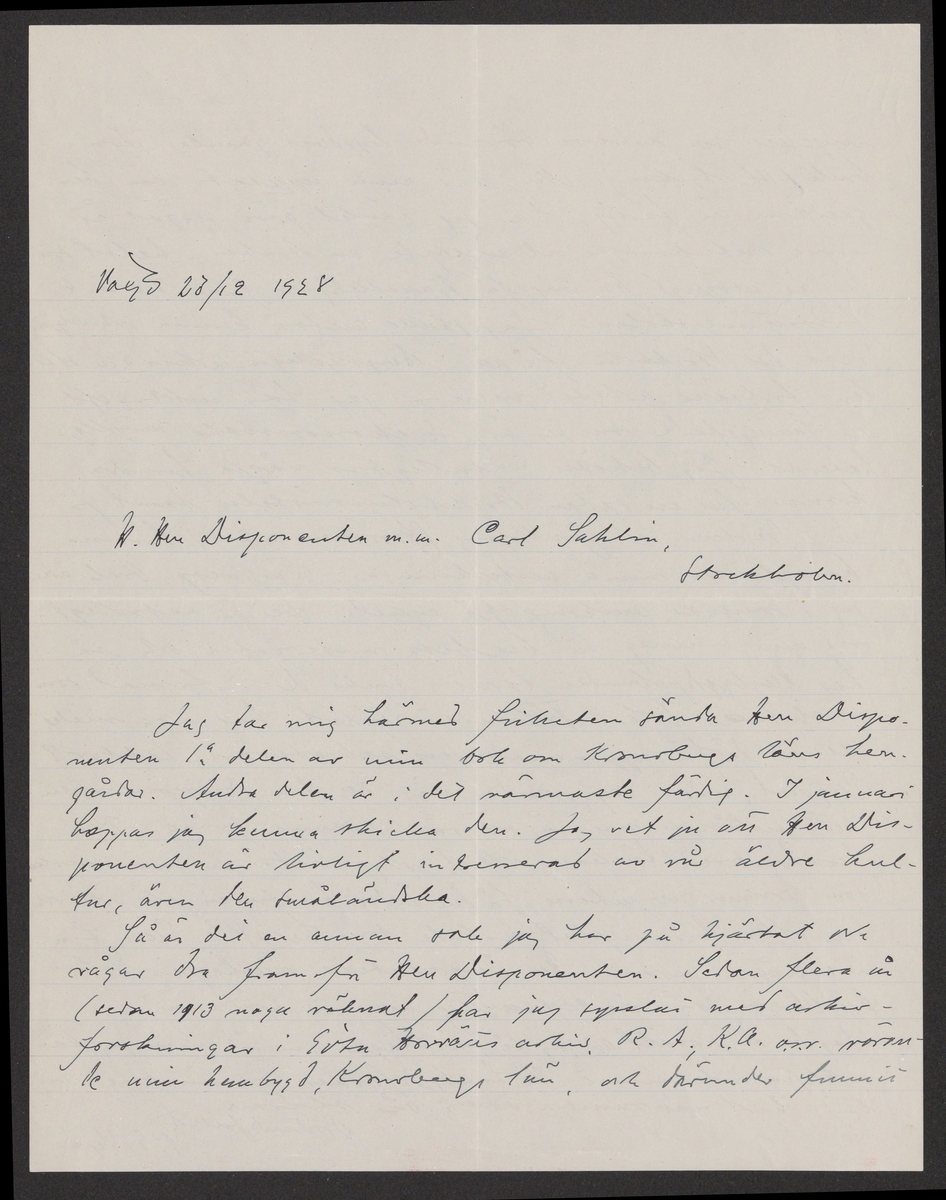 Växjö 23/12 1928
H. Herr Disponenten m.m. Carl Sahlin,
Stockholm.
Jag tar mig härmed friheten sända Herr Dispo-
nenten 1a delen av min bok om Kronobergs läns herr-
gårdar. Andra delen är i det närmaste färdig. I januari
hoppas jag kunna skicka den. Jag vet ju att Herr Dis-
ponenten är livligt intresserad av vår äldre kul-
tur, även den småländska.
Så är det en annan sak jag har på hjärtat och
vågar dra fram för Herr Disponenten. Sedan flera år
(sedan 1913 noga räknat) har jag sysslat med arkiv-
forskningar i Göta Hovrätts arkiv, R. A., K.A. osv. röran-
de min hembygd, Kronobergs län, och därunder funnit